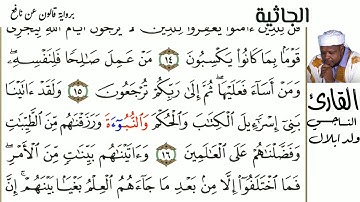 الجاثية
برواية قالون عن نافع
قُل لِّلذِينَ ءَامَنُوا يَغْفِرُوا لِلذِينَ لَا يَرْجُونَ أَيَّامَ اَللَّهِ لِيَجْزِيَ
قَوْمَۢا بِمَا كَانُوا يَكْسِبُونَ ١٤ مَنْ عَمِلَ صَٰلِحا فَلِنَفْسِهِۦ
وَمَنْ أَسَآءَ فَعَلَيْهَا ثُمَّ إِلَىٰ رَبِّكُمْ تُرْجَعُونَ ١٥ وَلَقَدْ ءَاتَيْنَا
بَنِي إِسْرَٰٓءِيلَ اَلْكِتَٰبَ وَالْحُكْمَ وَالنُّبُوٓءَةَ وَرَزَقْنَٰهُم مِّنَ اَلطَّيِّبَٰتِ
وَفَضَّلْنَٰهُمْ عَلَى اَلْعَٰلَمِينَ ١٦ وَءَاتَيْنَٰهُم بَيِّنَٰتٖ مِّنَ اَلْأَمْرِ
فَمَا اَخْتَلَفُوا إِلَّا مِنۢ بَعْدِ مَا جَآءَهُمُ اُلْعِلْمُ بَغْيَۢا بَيْنَهُمْ إِنَّ
القارئ
الناجي
ولد ابلال